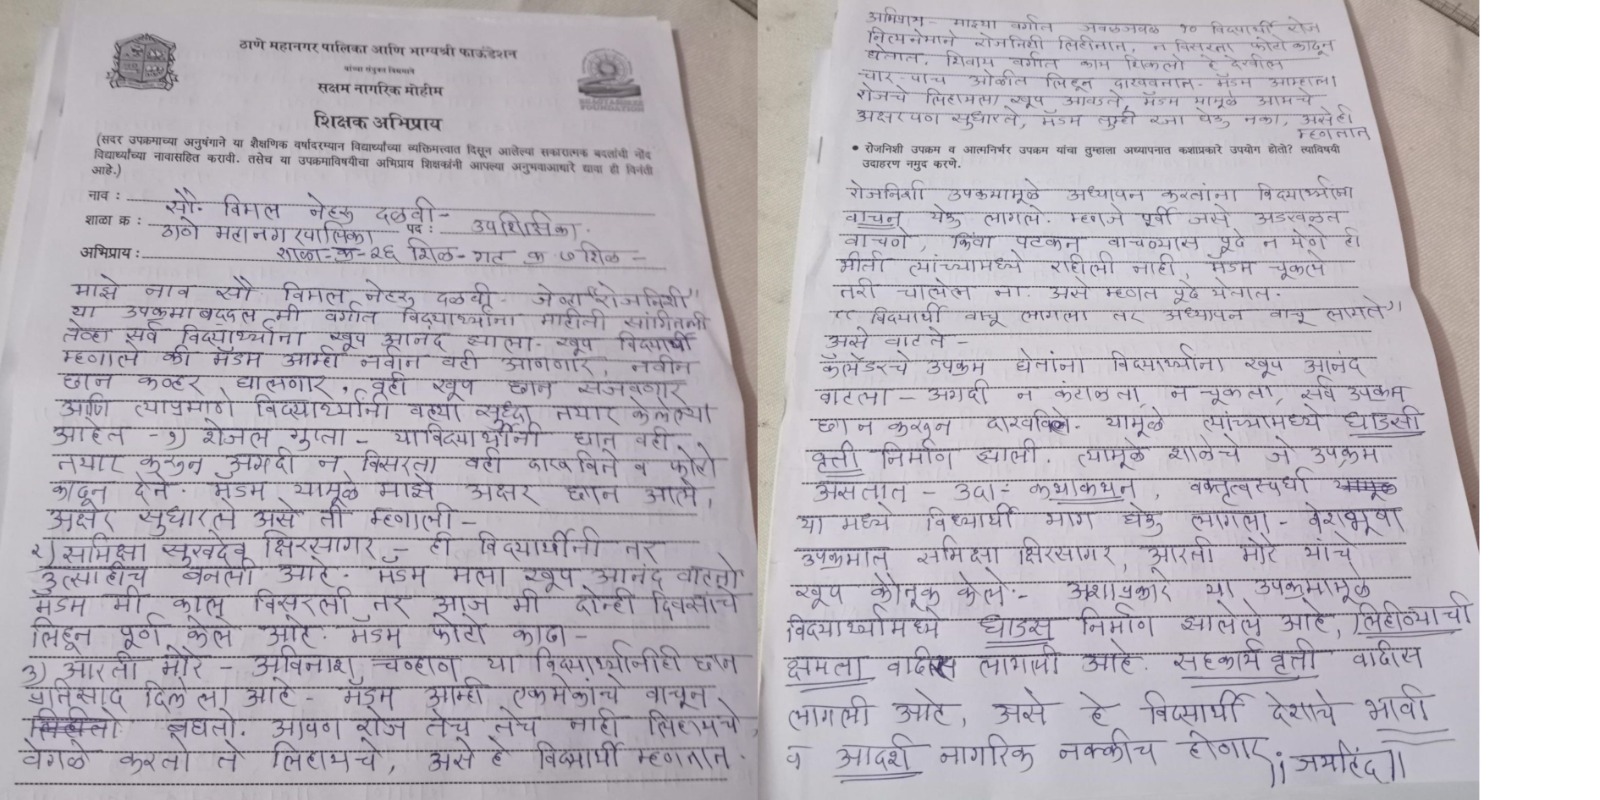 ठाणे महानगर पालिका आणि भाग्यश्री फाऊंडेशन
यांच्या संयुक्त विद्यमाने
सक्षम नागरिक मोहीम
शिक्षक अभिप्राय
(सदर उपक्रमाच्या अनुषंगाने या शैक्षणिक वर्षादरम्यान विद्यार्थ्यांच्या व्यक्तिमत्त्वात दिसून आलेल्या सकारात्मक बदलांची नोंद
विद्यार्थ्यांच्या नावासहित करावी. तसेच या उपक्रमाविषयीचा अभिप्राय शिक्षकांनी आपल्या अनुभवाआधारे द्यावा ही विनंती
आहे.)
नाव : सौ. विमल नेहरू दळवी-
शाळा क्र : ठाणे महानगरपालिका पद : उपशिक्षिका.
अभिप्राय : शाळा-क्र-२६ शिळ-गट क्र ७ शिळ-
माझे नाव सौ विमल नेहरू दळवी- जेव्हा "रोजनिशी"
या उपक्रमाबद्दल मी वर्गात विद्यार्थ्यांना माहीती सांगितली
तेव्हा सर्व विद्यार्थ्यांना खूप आनंद झाला. खूप विद्यार्थी
म्हणाले की मॅडम आम्ही नवीन वही आणणार, नवीन
छान कव्हर घालणार, वही खूप छान सजवणार
आणि त्याप्रमाणे विद्यार्थ्यांनी वह्या सुध्दा तयार केलेल्या
आहेत - १) शेजल गुप्ता - या विद्यार्थीनी छान वही
तयार करून अगदी न विसरता वही दाखविते व फोटो
काढून देते. मॅडम यामूळे माझे अक्षर छान आले,
अक्षर सुधारले असे ती म्हणाली -
२) समिक्षा सुखदेव क्षिरसागर - ही विद्यार्थीनी तर
उत्साहीच बनली आहे. मॅडम मला खूप आनंद वाटतो
मॅडम मी काल विसरली तर आज मी दोन्ही दिवसाचे
लिहून पूर्ण केले आहे. मॅडम फोटो काढा -
३) आरती मोरे - अविनाश चव्हाण या विद्यार्थ्यांनीही छान
प्रतिसाद दिलेला आहे - मॅडम आम्ही एकमेकांचे वाचून
बघतो. आपण रोज तेच तेच नाही लिहायचे,
वेगळे करतो ते लिहायचे, असे हे विद्यार्थी म्हणतात.
अभिप्राय - माझ्या वर्गात जवळजवळ १० विद्यार्थी रोज
नित्यनेमाने रोजनिशी लिहीतात, न विसरता फोटो काढून
घेतात, शिवाय वर्गात काय शिकलो हे देखील
चार-पाच ओळीत लिहून दाखवतात. मॅडम आम्हाला
रोजचे लिहायला खूप आवडते, मॅडम यामूळे आमचे
अक्षरपण सुधारले, मॅडम तुम्ही रजा घेऊ नका, असेही
म्हणतात
• रोजनिशी उपक्रम व आत्मनिर्भर उपक्रम यांचा तुम्हाला अध्यापनात कशाप्रकारे उपयोग होतो? त्याविषयी
उदाहरण नमुद करणे.
रोजनिशी उपक्रमामूळे अध्यापन करतांना विद्यार्थ्यांना
वाचन येऊ लागले. म्हणजे पूर्वी जसे अडखळत
वाचणे, किंवा पटकन वाचण्यास पूढे न येणे ही
भीती त्यांच्यामध्ये राहीली नाही, मॅडम चूकले
तरी चालेल ना. असे म्हणत पूढे येतात.
"विद्यार्थी वाचू लागला तर अध्यापन वाचू लागते"
असे वाटते -
कॅलेंडरचे उपक्रम घेतांना विद्यार्थ्यांना खूप आनंद
वाटला - अगदी न कंटाळता, न चूकता, सर्व उपक्रम
छान करून दाखविले. यामूळे त्यांच्यामध्ये धाडसी
वृत्ती निर्माण झाली. त्यामूळे शाळेचे जे उपक्रम
असतात - उदा- कथाकथन, वक्तृत्वस्पर्धा
या मध्ये विद्यार्थी भाग घेऊ लागला - वेशभूषा
उपक्रमात समिक्षा क्षिरसागर, आरती मोरे यांचे
खूप कौतूक केले - अशाप्रकारे या उपक्रमामूळे
विद्यार्थ्यांमध्ये धाडस निर्माण झालेले आहे, लिहीण्याची
क्षमता वाढीस लागली आहे. सहकार्य वृत्ती वाढीस
लागली आहे, असे हे विद्यार्थी देशाचे भावी
व आदर्श नागरिक नक्कीच होणार ।। जयहिंद ।।